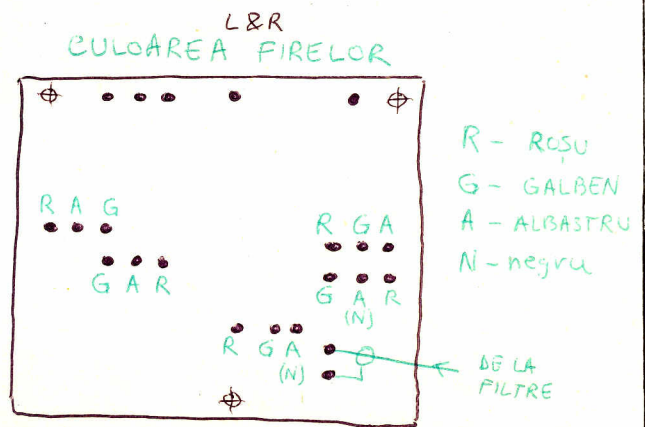 L&R
CULOAREA FIRELOR
R - ROȘU
G - GALBEN
A - ALBASTRU
N - negru
R A G
G A R
R G A
G A R
(N)
R G A
(N)
DE LA
FILTRE